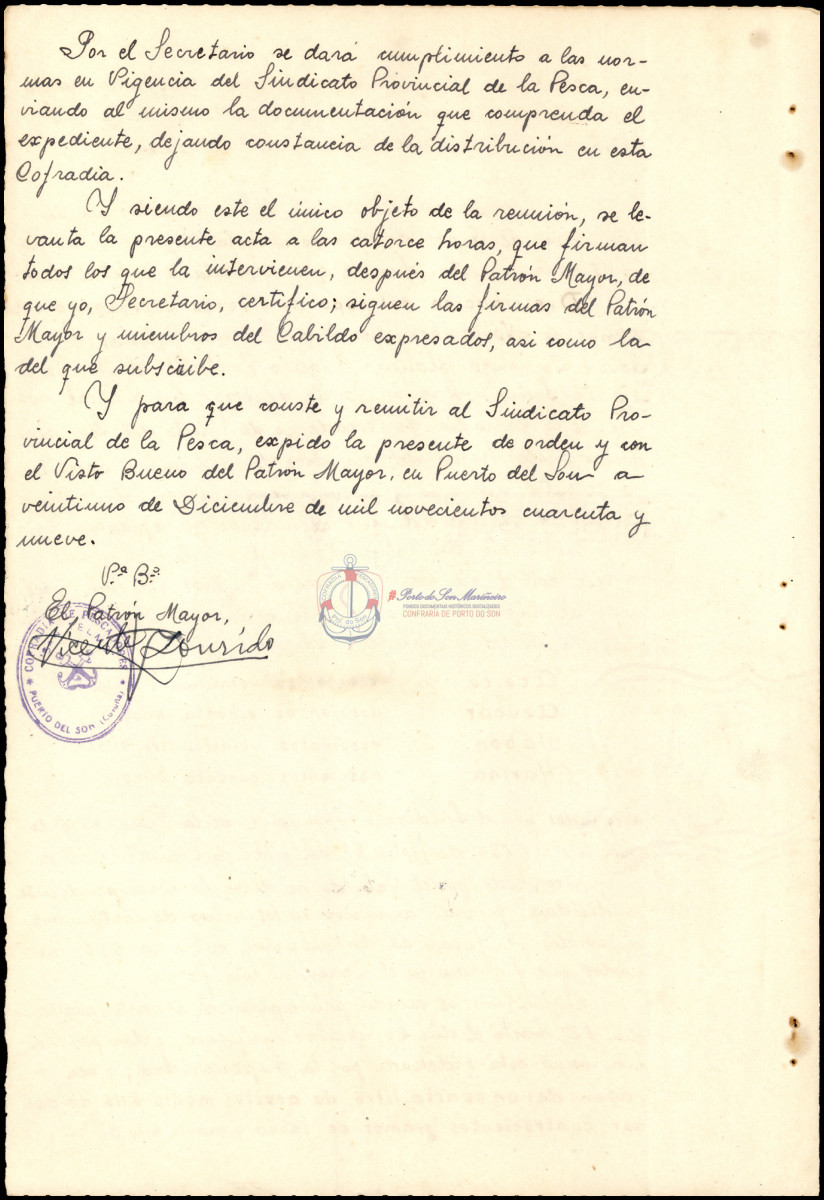 Por el Secretario se dará cumplimiento a las nor-
mas en Vigencia del Sindicato Provincial de la Pesca, en-
viando al mismo la documentación que comprenda el
expediente, dejando constancia de la distribución en esta
Cofradia.
Y siendo este el único objeto de la reunión, se le-
vanta la presente acta a las catorce horas, que firman
todos los que la intervienen, después del Patrón Mayor, de
que yo, Secretario, certifico; siguen las firmas del Patrón
Mayor y miembros del Cabildo expresados, asi como la
del que subscribe.
Y para que conste y remitir al Sindicato Pro-
vincial de la Pesca, expido la presente de orden y con
el Visto Bueno del Patrón Mayor, en Puerto del Son a
veintiuno de Diciembre de mil novecientos cuarenta y
nueve.
V.º B.º
El Patrón Mayor,
Vicente Lourido
COFRADIA DE PESCADORES
PUERTO DEL SON (Coruña)
#Porto do Son Mariñeiro
FONDOS DOCUMENTAIS HISTÓRICOS DIXITALIZADOS
CONFRARÍA DE PORTO DO SON